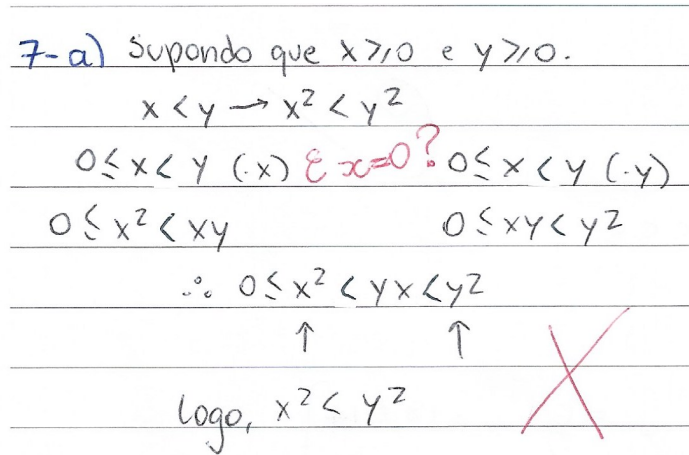 7-a) Supondo que x ≥ 0 e y ≥ 0.
x < y → x² < y²
0 ≤ x < y (·x) E x=0? 0 ≤ x < y (·y)
0 ≤ x² < xy 0 ≤ xy < y²
∴ 0 ≤ x² < yx < y²
↑ ↑
Logo, x² < y²